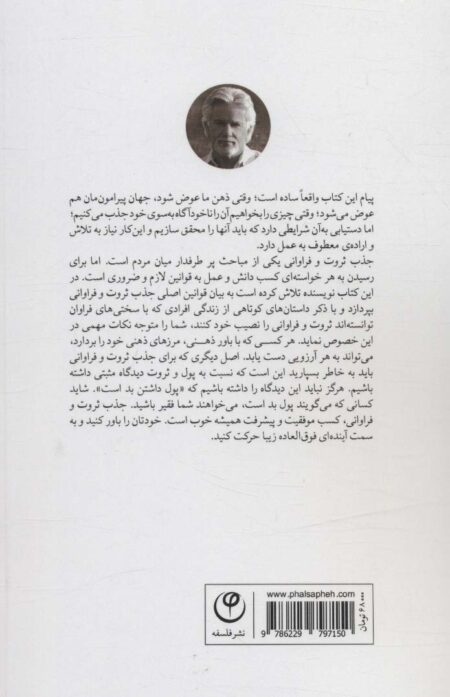 پیام این کتاب واقعاً ساده است؛ وقتی ذهن ما عوض شود، جهان پیرامون‌مان هم
عوض می‌شود؛ وقتی چیزی را بخواهیم آن را ناخودآگاه به‌سوی خود جذب می‌کنیم؛
اما دستیابی به‌آن شرایطی دارد که باید آنها را محقق سازیم و این‌کار نیاز به تلاش
و اراده‌ی معطوف به عمل دارد.
جذب ثروت و فراوانی یکی از مباحث پر طرفدار میان مردم است. اما برای
رسیدن به هر خواسته‌ای کسب دانش و عمل به قوانین لازم و ضروری است. در
این کتاب نویسنده تلاش کرده است به بیان قوانین اصلی جذب ثروت و فراوانی
بپردازد و با ذکر داستان‌های کوتاهی از زندگی افرادی که با سختی‌های فراوان
توانسته‌اند ثروت و فراوانی را نصیب خود کنند، شما را متوجه نکات مهمی در
این خصوص نماید. هر کسی که با باور ذهنی، مرزهای ذهنی خود را بردارد،
می‌تواند به هر آرزویی دست یابد. اصل دیگری که برای جذب ثروت و فراوانی
باید به خاطر بسپارید این است که نسبت به پول و ثروت دیدگاه مثبتی داشته
باشیم. هرگز نباید این دیدگاه را داشته باشیم که «پول داشتن بد است». شاید
کسانی که می‌گویند پول بد است، می‌خواهند شما فقیر باشید. جذب ثروت و
فراوانی، کسب موفقیت و پیشرفت همیشه خوب است. خودتان را باور کنید و به
سمت آینده‌ای فوق‌العاده زیبا حرکت کنید.
www.phalsapheh.com
9 786229 797150
نشر فلسفه
۶۸۰۰۰ تومان